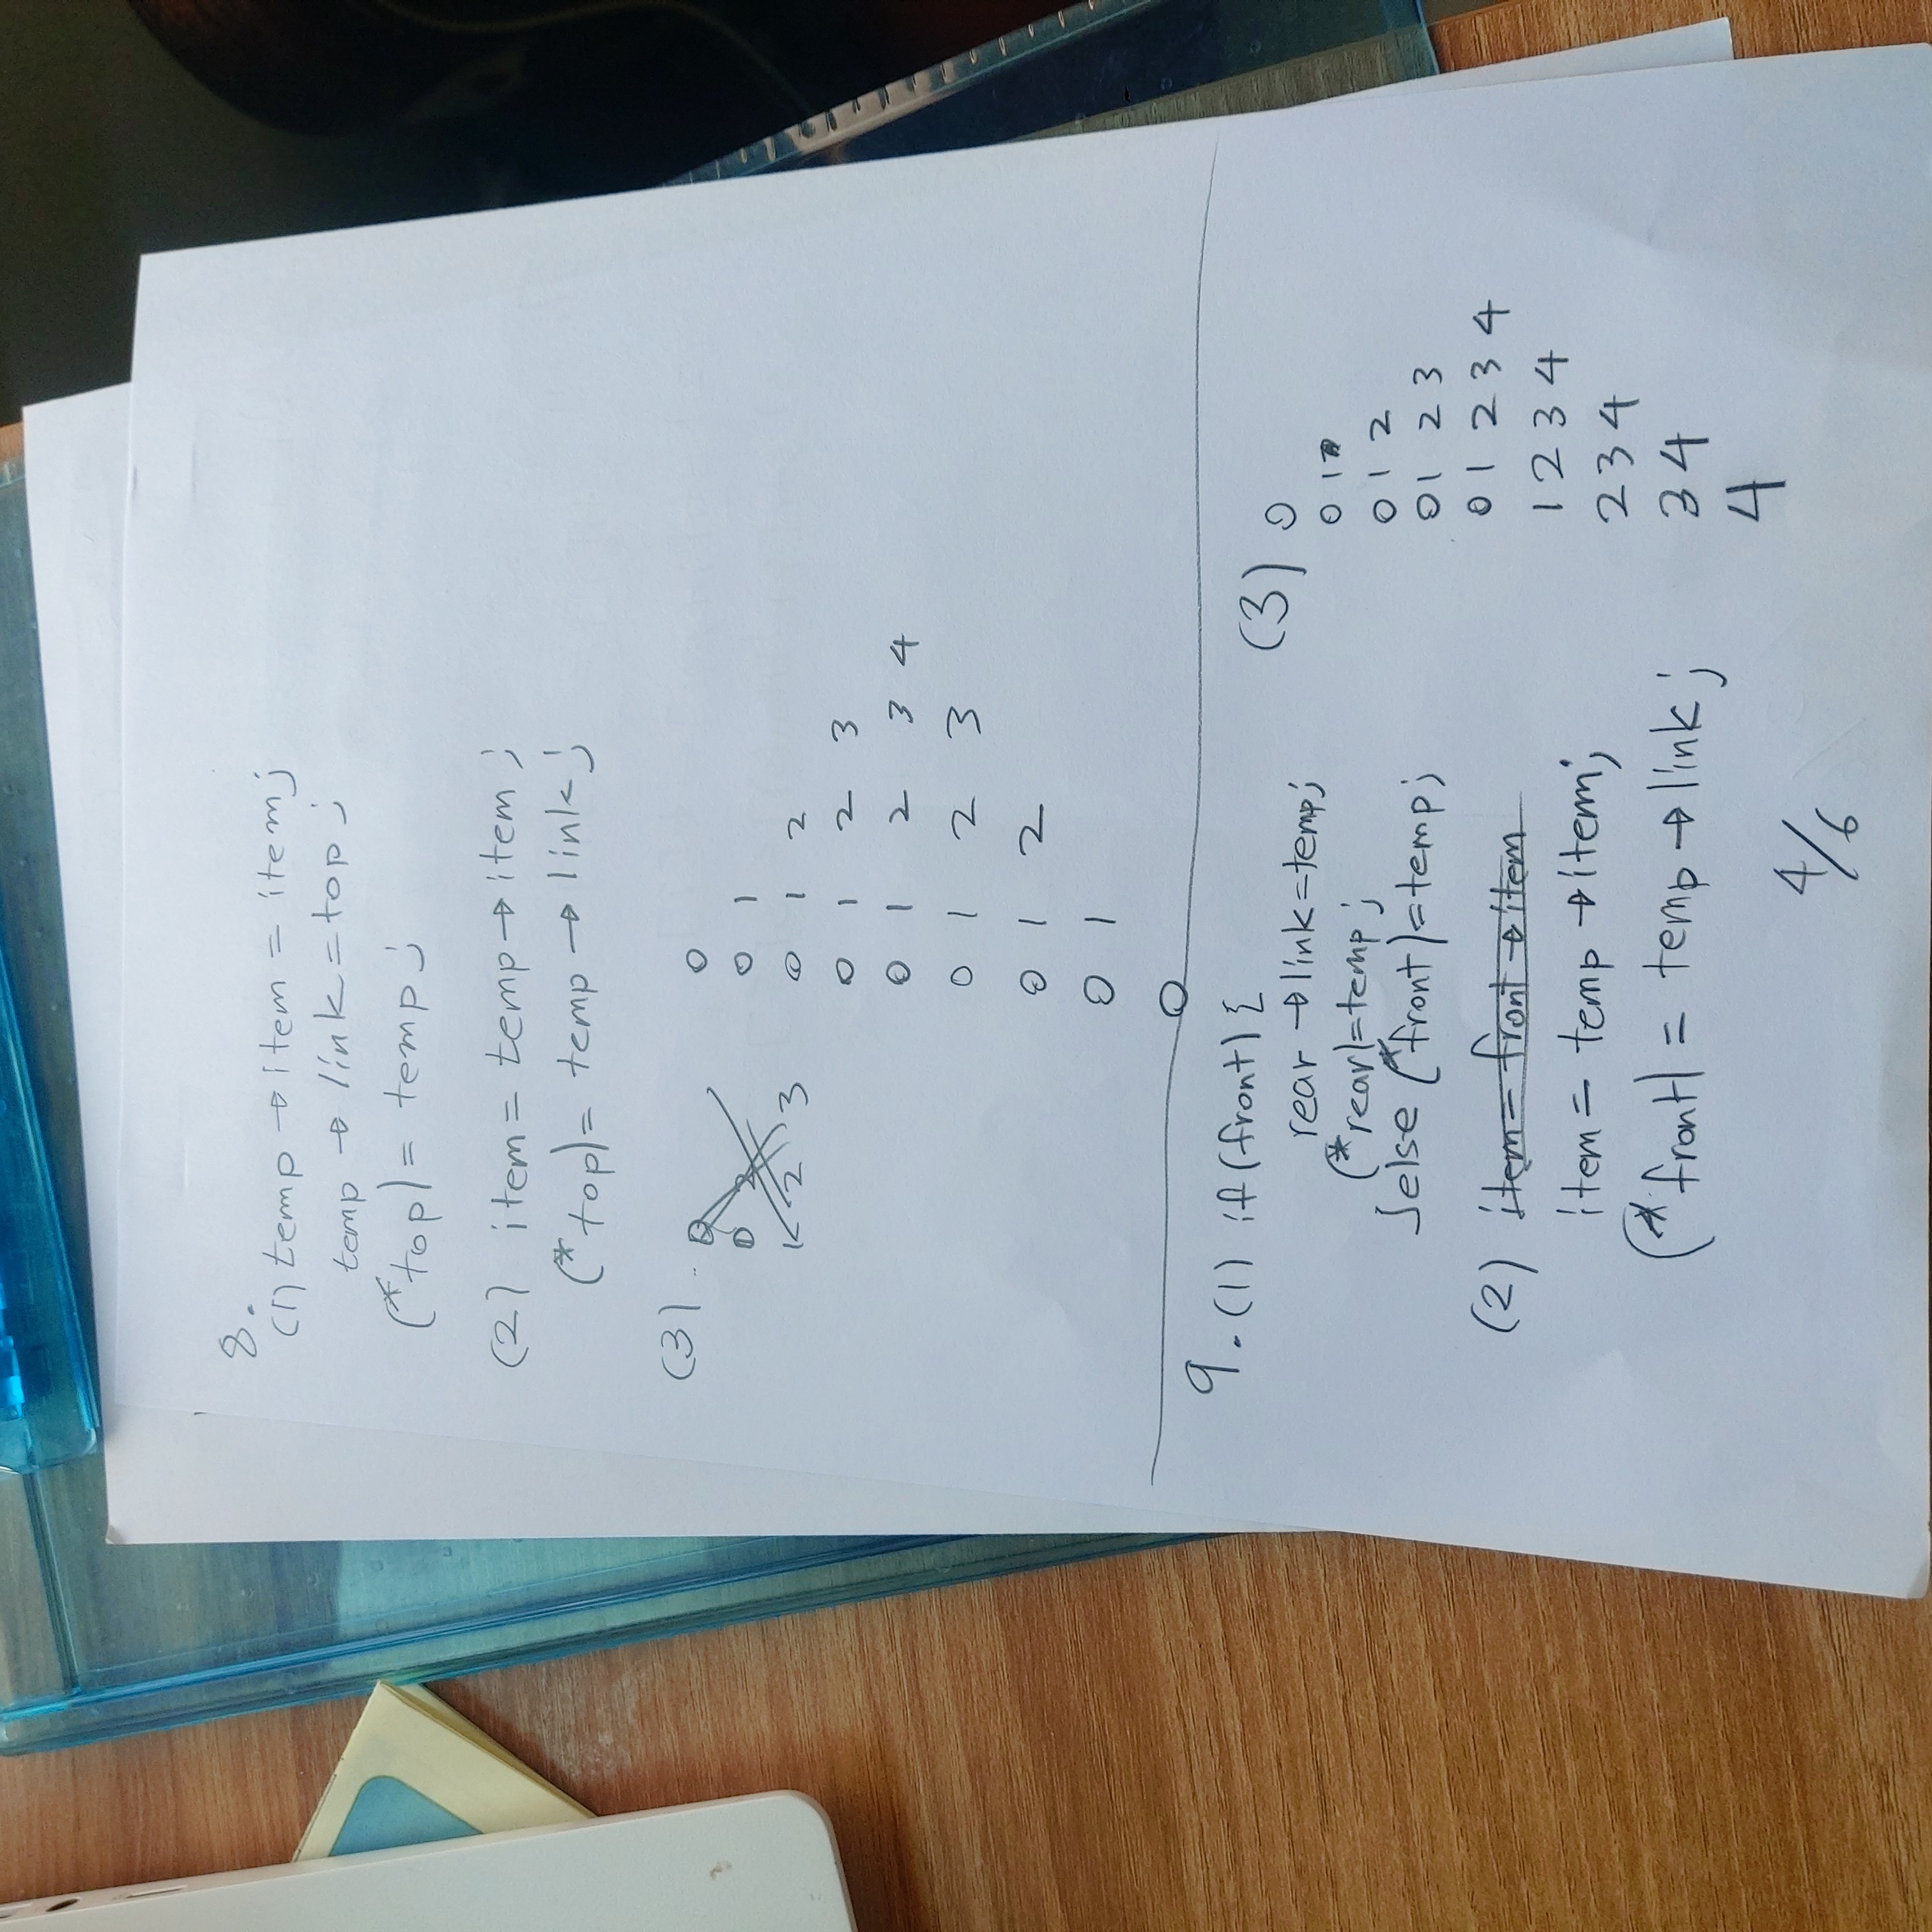 8.
(1) temp → item = item;
temp → link = top;
(*top) = temp;
(2) item = temp → item;
(*top) = temp → link;
(3)
0
0 1
0 1 2
0 1 2 3
0 1 2 3 4
0 1 2 3
0 1 2
0 1
0
9. (1) if (front) {
rear → link = temp;
(*rear) = temp;
}else (*front) = temp;
(2) item = front → item
item = temp → item;
(*front) = temp → link;
(3) 0
0 1
0 1 2
0 1 2 3
0 1 2 3 4
1 2 3 4
2 3 4
3 4
4
4/6